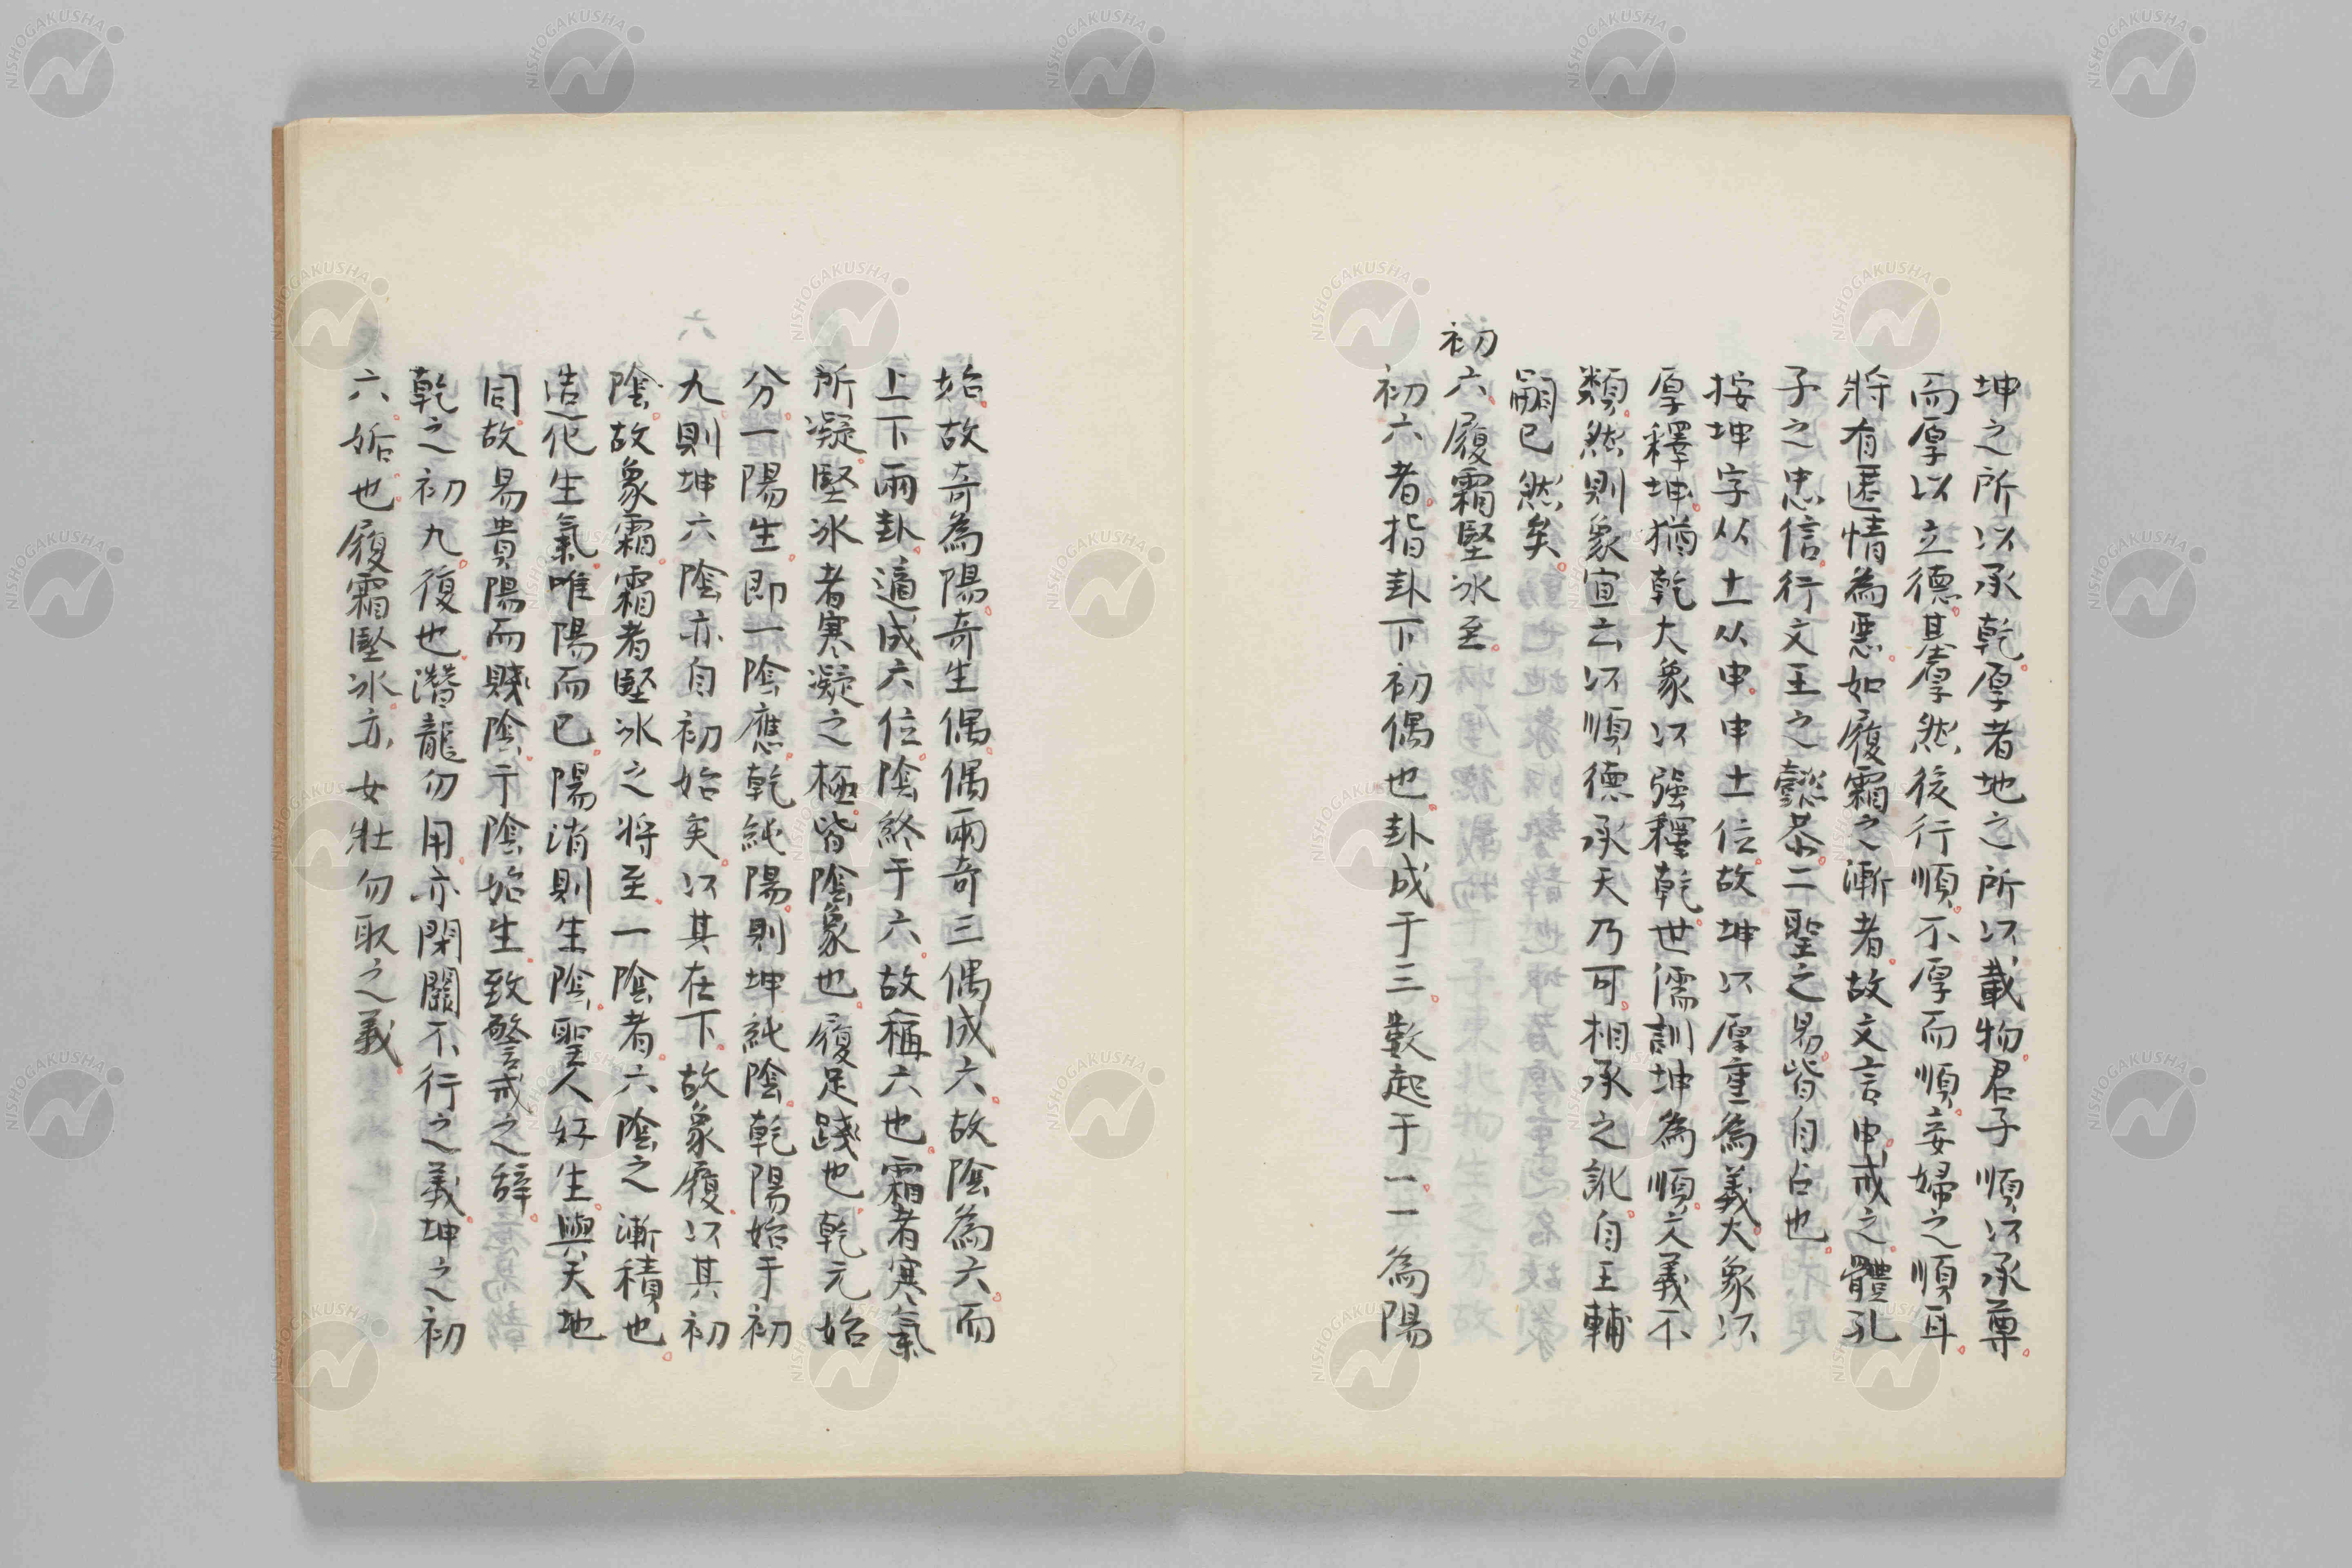 坤之所以承乾。厚者地之所以載物。君子順以承尊。
而厚以立德。基厚然後行順。不厚而順。妾婦之順耳。
將有匿情為惡。如履霜之漸者。故文言申戒之。體孔
子之忠信。行文王之懿恭。二聖之易。皆自占也。
按坤字从土从申。申土位。故坤以厚重為義。大象以
厚釋坤。猶乾大象以强釋乾。世儒訓坤為順。文義不
類。然則象宜云以順德承天乃可。相承之訛。自王輔
嗣已然矣。
初六。履霜堅冰至。
初六者。指卦下初偶也。卦成于三。數起于一。一為陽
始。故奇為陽。奇生偶。偶兩奇三偶成六。故陰為六。而
上下兩卦。適成六位。陰終于六。故稱六也。霜者寒氣
所凝。堅冰者寒凝之極。皆陰象也。履足踐也。乾元始
分。一陽生。即一陰應。乾純陽。則坤純陰。乾陽始于初
九。則坤六陰亦自初始矣。以其在下。故象履。以其初
陰。故象霜。霜者堅冰之將至。一陰者。六陰之漸積也。
造化生氣。唯陽而已。陽消則生陰。聖人好生。與天地
同。故易貴陽而賤陰。于陰始生。致警戒之辭。
乾之初九。復也。潛龍勿用。亦閉關不行之義。坤之初
六。姤也。履霜堅冰。亦女壯勿取之義。
NISHOGAKUSHA